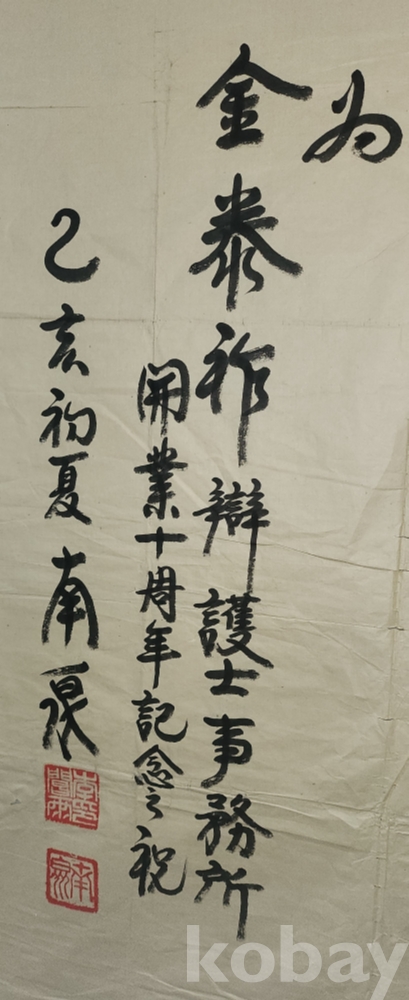 為
金泰祚辯護士事務所
開業十周年記念之祝
乙亥初夏 南
kobay